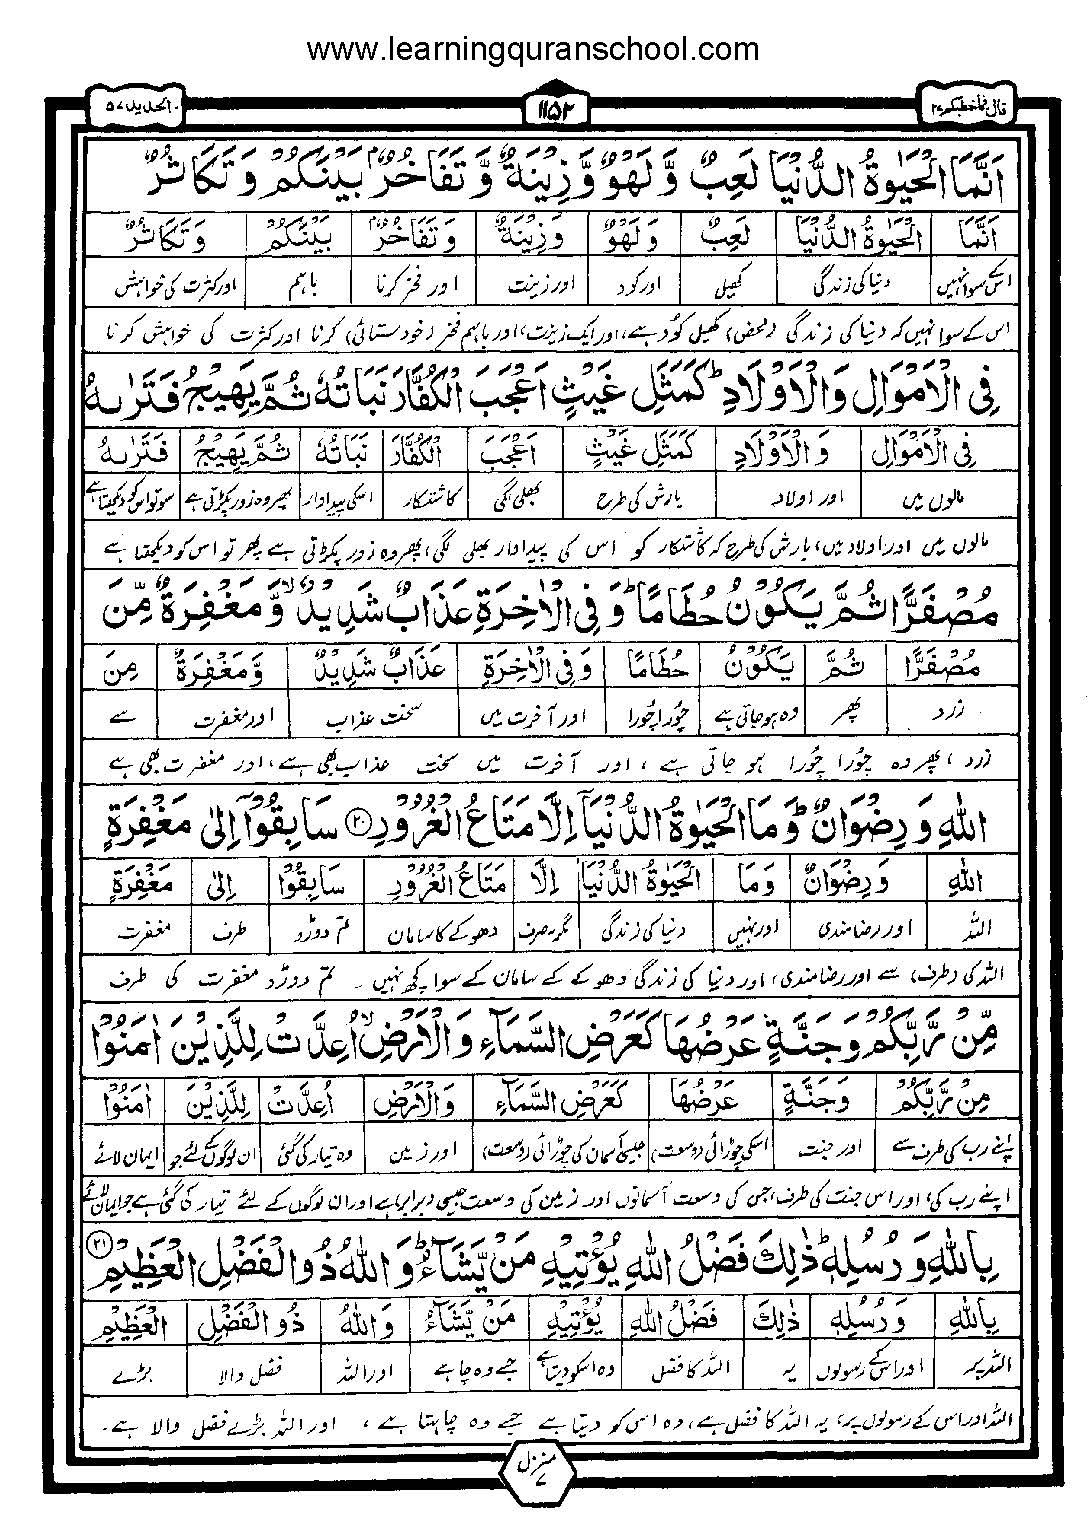 www.learningquranschool.com
قال فما خطبکم ۲۷
۱۱۵۲
الحدید ۵۷
اَنَّمَا الْحَیٰوةُ الدُّنْیَا لَعِبٌ وَّلَهْوٌ وَّزِیْنَةٌ وَّتَفَاخُرٌۢ بَیْنَكُمْ وَتَكَاثُرٌ
اَنَّمَا الْحَیٰوةُ الدُّنْیَا لَعِبٌ وَلَهْوٌ وَزِیْنَةٌ وَتَفَاخُرٌۢ بَیْنَكُمْ وَتَكَاثُرٌ
اسکے سوا نہیں دنیا کی زندگی کھیل اور کود اور زینت اور فخر کرنا باہم اور کثرت کی خواہش
اس کے سوا نہیں کہ دنیا کی زندگی (محض) کھیل کود ہے، اور ایک زینت، اور باہم فخر (خودستائی) کرنا اور کثرت کی خواہش کرنا
فِی الْاَمْوَالِ وَالْاَوْلَادِ ؕ كَمَثَلِ غَیْثٍ اَعْجَبَ الْكُفَّارَ نَبَاتُهٗ ثُمَّ یَهِیْجُ فَتَرٰىهُ
فِی الْاَمْوَالِ وَالْاَوْلَادِ كَمَثَلِ غَیْثٍ اَعْجَبَ الْكُفَّارَ نَبَاتُهٗ ثُمَّ یَهِیْجُ فَتَرٰىهُ
مالوں میں اور اولاد بارش کی طرح بھلی لگی کاشتکار اسکی پیداوار پھر وہ زور پکڑتی ہے سو تو اس کو دیکھتا ہے
مالوں میں اور اولاد میں، بارش کی طرح کہ کاشتکار کو اس کی پیداوار بھلی لگی، پھر وہ زور پکڑتی ہے پھر تو اس کو دیکھتا ہے
مُصْفَرًّا ثُمَّ یَكُوْنُ حُطَامًا ؕ وَفِی الْاٰخِرَةِ عَذَابٌ شَدِیْدٌ ۙ وَّمَغْفِرَةٌ مِّنَ
مُصْفَرًّا ثُمَّ یَكُوْنُ حُطَامًا وَفِی الْاٰخِرَةِ عَذَابٌ شَدِیْدٌ وَّمَغْفِرَةٌ مِنَ
زرد پھر وہ ہو جاتی ہے چُورا چُورا اور آخرت میں سخت عذاب اور مغفرت سے
زرد، پھر وہ چُورا چُورا ہو جاتی ہے، اور آخرت میں سخت عذاب بھی ہے، اور مغفرت بھی ہے
اللّٰهِ وَرِضْوَانٌ ؕ وَمَا الْحَیٰوةُ الدُّنْیَاۤ اِلَّا مَتَاعُ الْغُرُوْرِ ﴿۲۰﴾ سَابِقُوْۤا اِلٰی مَغْفِرَةٍ
اللّٰهِ وَرِضْوَانٌ وَمَا الْحَیٰوةُ الدُّنْیَا اِلَّا مَتَاعُ الْغُرُوْرِ سَابِقُوْا اِلٰی مَغْفِرَةٍ
اللہ اور رضامندی اور نہیں دنیا کی زندگی مگر۔صرف دھوکے کا سامان تم دوڑو طرف مغفرت
اللہ کی (طرف) سے اور رضامندی، اور دنیا کی زندگی دھوکے کے سامان کے سوا کچھ نہیں۔ تم دوڑو مغفرت کی طرف
مِّنْ رَّبِّكُمْ وَجَنَّةٍ عَرْضُهَا كَعَرْضِ السَّمَآءِ وَالْاَرْضِ ۙ اُعِدَّتْ لِلَّذِیْنَ اٰمَنُوْا
مِنْ رَّبِّكُمْ وَجَنَّةٍ عَرْضُهَا كَعَرْضِ السَّمَآءِ وَالْاَرْضِ اُعِدَّتْ لِلَّذِیْنَ اٰمَنُوْا
اپنے رب کی طرف سے اور جنت اسکی چوڑائی (وسعت) جیسی آسمان کی چوڑائی (وسعت) اور زمین وہ تیار کی گئی ان لوگوں کے لئے جو ایمان لائے
اپنے رب کی، اور اس جنت کی طرف، جس کی وسعت آسمانوں اور زمین کی وسعت جیسی (برابر) ہے اور ان لوگوں کے لئے تیار کی گئی ہے جو ایمان لائے
بِاللّٰهِ وَرُسُلِهٖ ؕ ذٰلِكَ فَضْلُ اللّٰهِ یُؤْتِیْهِ مَنْ یَّشَآءُ ؕ وَاللّٰهُ ذُو الْفَضْلِ الْعَظِیْمِ ﴿۲۱﴾
بِاللّٰهِ وَرُسُلِهٖ ذٰلِكَ فَضْلُ اللّٰهِ یُؤْتِیْهِ مَنْ یَّشَآءُ وَاللّٰهُ ذُو الْفَضْلِ الْعَظِیْمِ
اللہ پر اور اس کے رسولوں یہ اللہ کا فضل وہ اسکو دیتا ہے جسے وہ چاہے اور اللہ فضل والا بڑے
اللہ اور اس کے رسولوں پر، یہ اللہ کا فضل ہے، وہ اس کو دیتا ہے جسے وہ چاہتا ہے، اور اللہ بڑے فضل والا ہے۔
منزل ۷